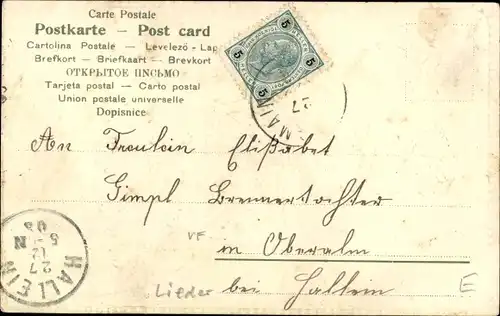 Carte Postale
Postkarte — Post card
Cartolina Postale — Levelező-Lap
Brefkort — Briefkaart — Brevkort
ОТКРЫТОЕ ПИСЬМО
Tarjeta postal — Carto postal
Union postale universelle
Dopisnice
5 5
5 5
MAIN
27
An Fräulein Elißabet
Gimpl Brennertochter
VF in Oberalm
Lieder bei Hallein E
HALLEIN
27
12
5-N
03